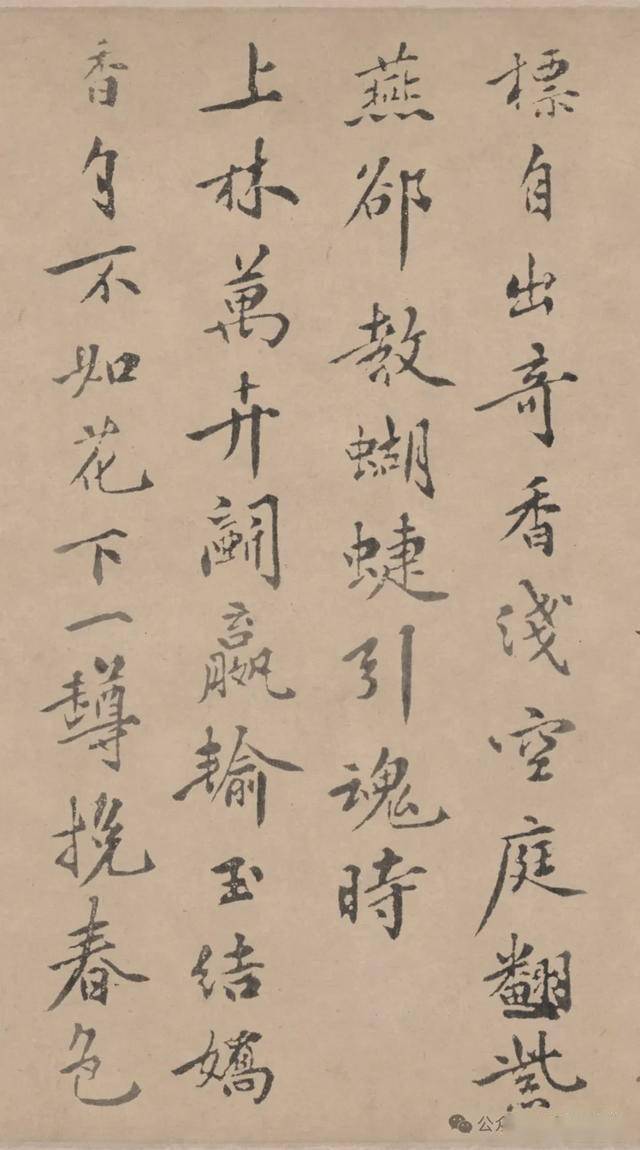 標自出奇香淺空庭翻紫
燕卻教蝴蜨引魂時
上林萬卉鬭贏輸玉結嬌
香自不如花下一罇挽春色
公众